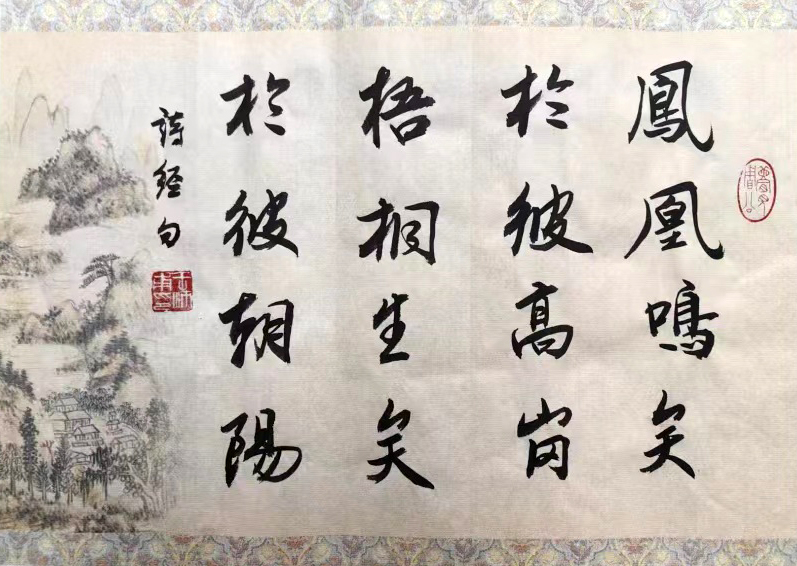 鳳凰鳴矣
於彼高岗
梧桐生矣
於彼朝陽
詩經句